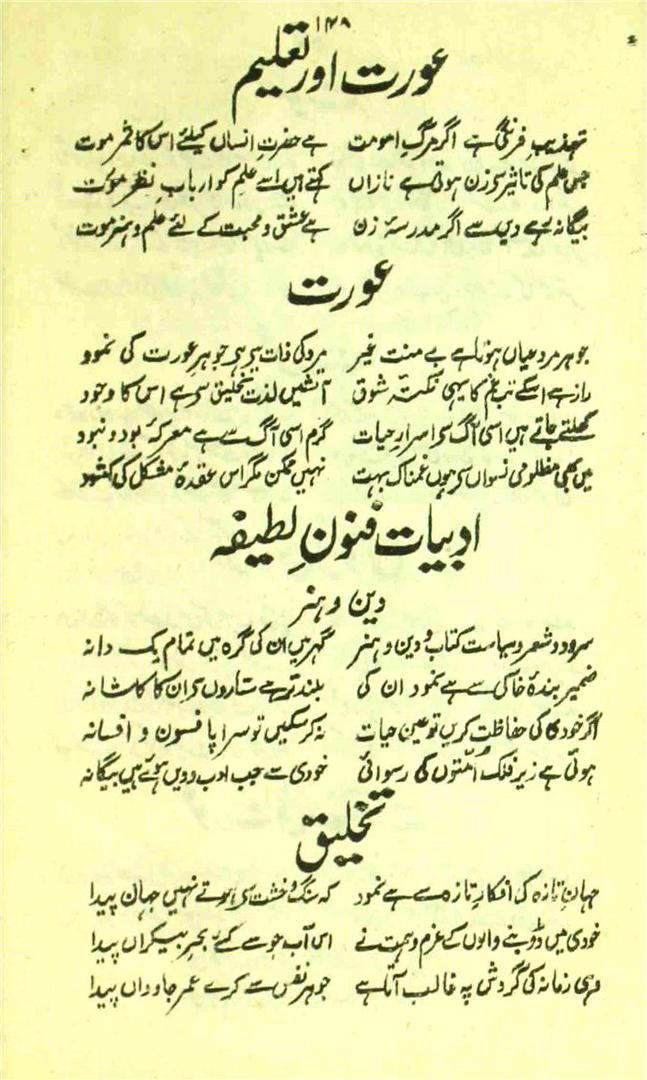 ۱۴۸
عورت اور تعلیم
تہذیبِ فرنگی ہے اگر مرگِ امومت ہے حضرتِ انساں کیلئے اس کا ثمر موت
جس علم کی تاثیر سے زن ہوتی ہے نازن کہتے ہیں اسے علم کو اربابِ نظر موت
بیگانہ رہے دیں سے اگر مدرسۂ زن ہے عشق و محبت کے لئے علم و ہنر موت
عورت
جوہرِ مرد عیاں ہوتا ہے بے منتِ غیر مرد کی ذات ہی ہے جوہرِ عورت کی نمود
راز ہے اسکے تپِ غم کا یہی نکتۂ شوق آتشیں لذتِ تخلیق سے ہے اس کا وجود
کھلتے جاتے ہیں اسی آگ سے اسرارِ حیات گرم اسی آگ سے ہے معرکۂ بود و نبود
میں بھی مظلومیِ نسواں سے ہوں غمناک بہت نہیں ممکن مگر اس عقدۂ مشکل کی کشود
ادبیات فنونِ لطیفہ
دین و ہنر
سرود و شعر و سیاست کتاب و دین و ہنر گہر ہیں ان کی گرہ میں تمام یک دانہ
ضمیر بندۂ خاکی سے ہے نمود ان کی بلند تر ہے ستاروں سے ان کا کاشانہ
اگر خودی کی حفاظت کریں تو عینِ حیات نہ کر سکیں تو سراپا فسون و افسانہ
ہوئی ہے زیرِ فلک اُمتوں کی رسوائی خودی سے جب ادب و دیں ہوئے ہیں بیگانہ
تخلیق
جہانِ تازہ کی افکارِ تازہ سے ہے نمود کہ سنگ و خشت سے ہوتے نہیں جہاں پیدا
خودی میں ڈوبنے والوں کے عزم و ہمت نے اس آب جو سے کئے بحرِ بیکراں پیدا
وہی زمانہ کی گردش پہ غالب آتا ہے جو ہر نفس سے کرے عمرِ جاوداں پیدا